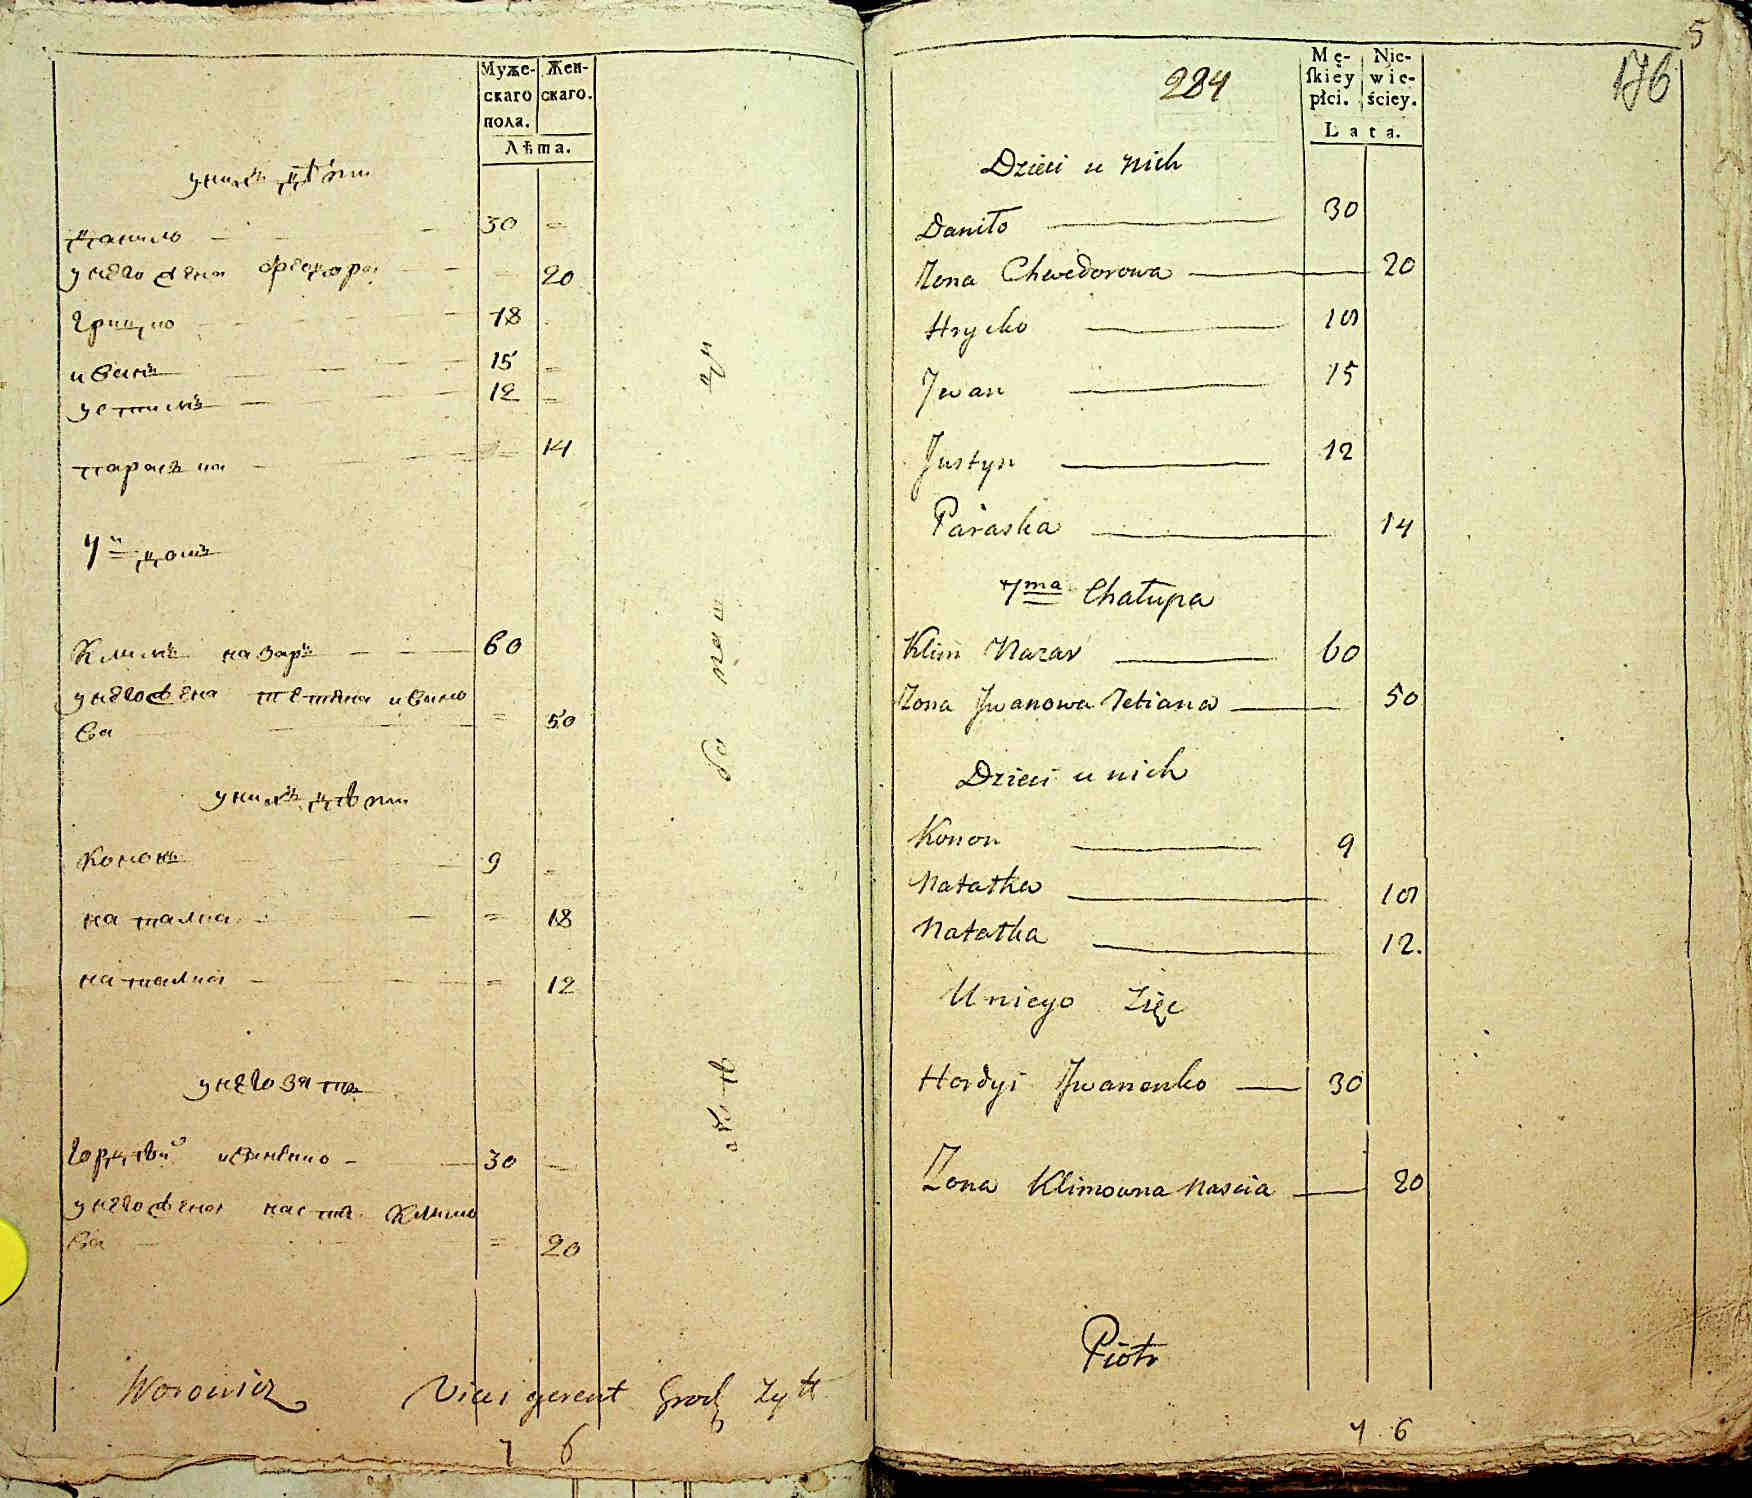 Муже-
скаго
пола.
Жен-
скаго.
Лѣта.
у нихъ дѣти
Данило 30
у него жена Феодора 20
Грицко 18
иванъ 15
устимъ 12
параска 14
7й домъ
Климъ назаръ 60
у него жена тетяна ивано
ва 50
у нихъ дѣти
Кононъ 9
наталка 18
наталка 12
у него зять
гордѣй иваненко 30
у него жена настя Климо
ва 20
Worowicz Vices gerent Grodz Zytt
7 6
5
176
284
Mę-
skiéy
płci.
Nie-
wie-
ściey.
Lata.
Dzieci u nich
Daniło 30
Zona Chwedorowa 20
Hrycko 18
Jwan 15
Justyn 12
Paraska 14
7ma Chałupa
Klim Nazar 60
Zona Jwanowa Tetiana 50
Dzieci u nich
Konon 9
Natałka 18
Natałka 12.
U niego Zięć
Hordyi Jwanenko 30
Zona Klimowna Nascia 20
Piotr
7 6